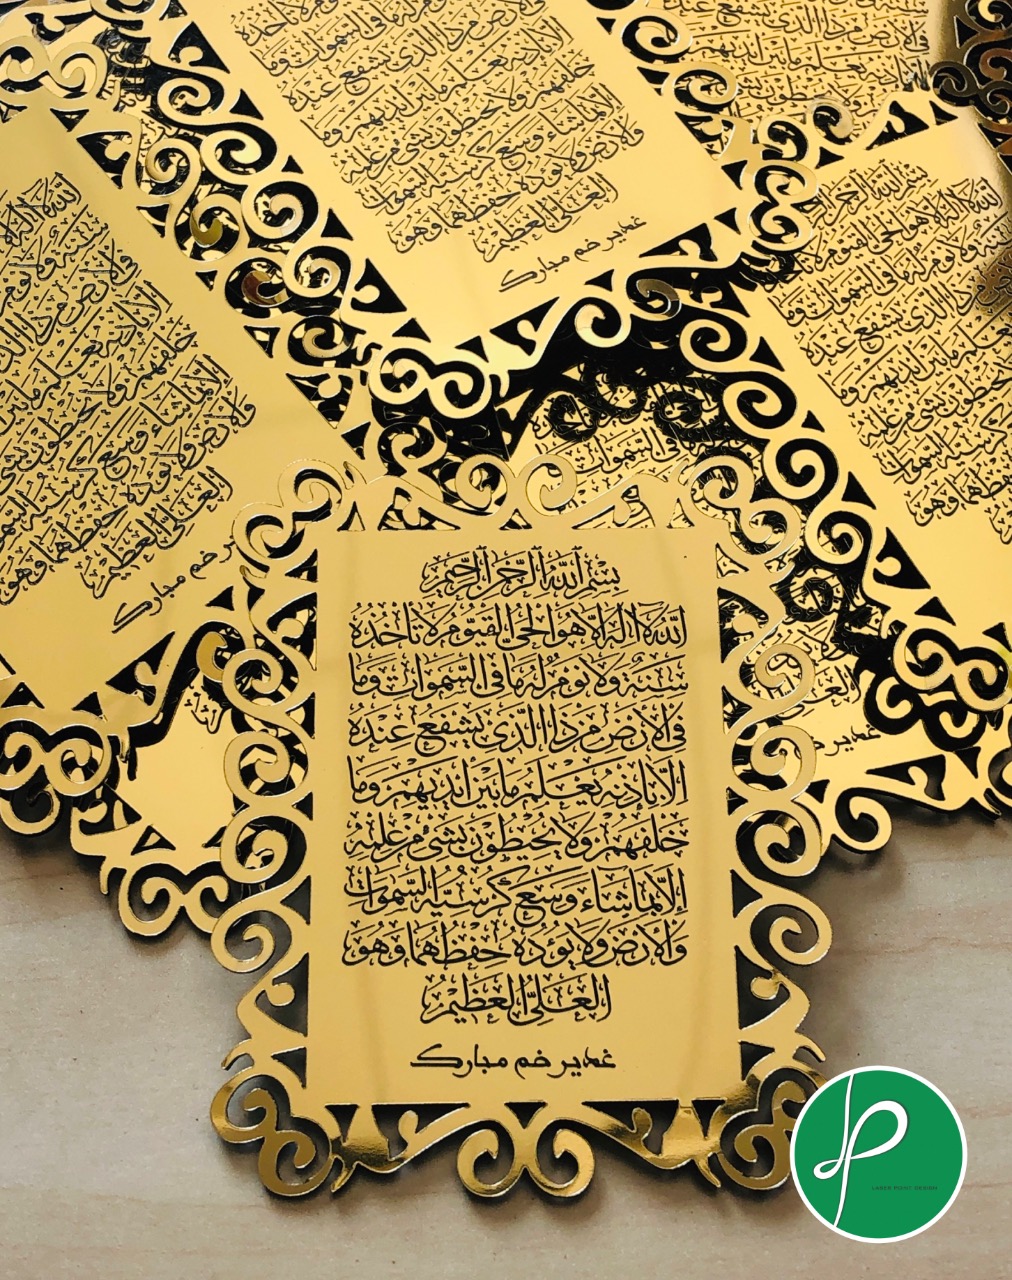 بِسْمِ اللهِ الرَّحْمنِ الرَّحيمِ
اَللّهُ لا اِلهَ اِلّا هُوَ الْحَیُّ الْقَیُّومُ لا تَأخُذُهُ
سِنَةٌ وَلا نَومٌ لَهُ ما فِی السَّمواتِ وَما
فِی الْاَرْضِ مَنْ ذَا الَّذی یَشْفَعُ عِنْدَهُ
اِلّا بِاِذْنِهِ یَعْلَمُ ما بَیْنَ اَیْدیهِمْ وَما
خَلْفَهُمْ وَلا یُحیطُونَ بِشَیْءٍ مِنْ عِلْمِهِ
اِلّا بِما شاءَ وَسِعَ كُرْسِیُّهُ السَّمواتِ
وَالْاَرْضَ وَلا یَؤُدُهُ حِفْظُهُما وَهُوَ
الْعَلِیُّ الْعَظیمُ
غدیر خم مبارک
LASER POINT DESIGN